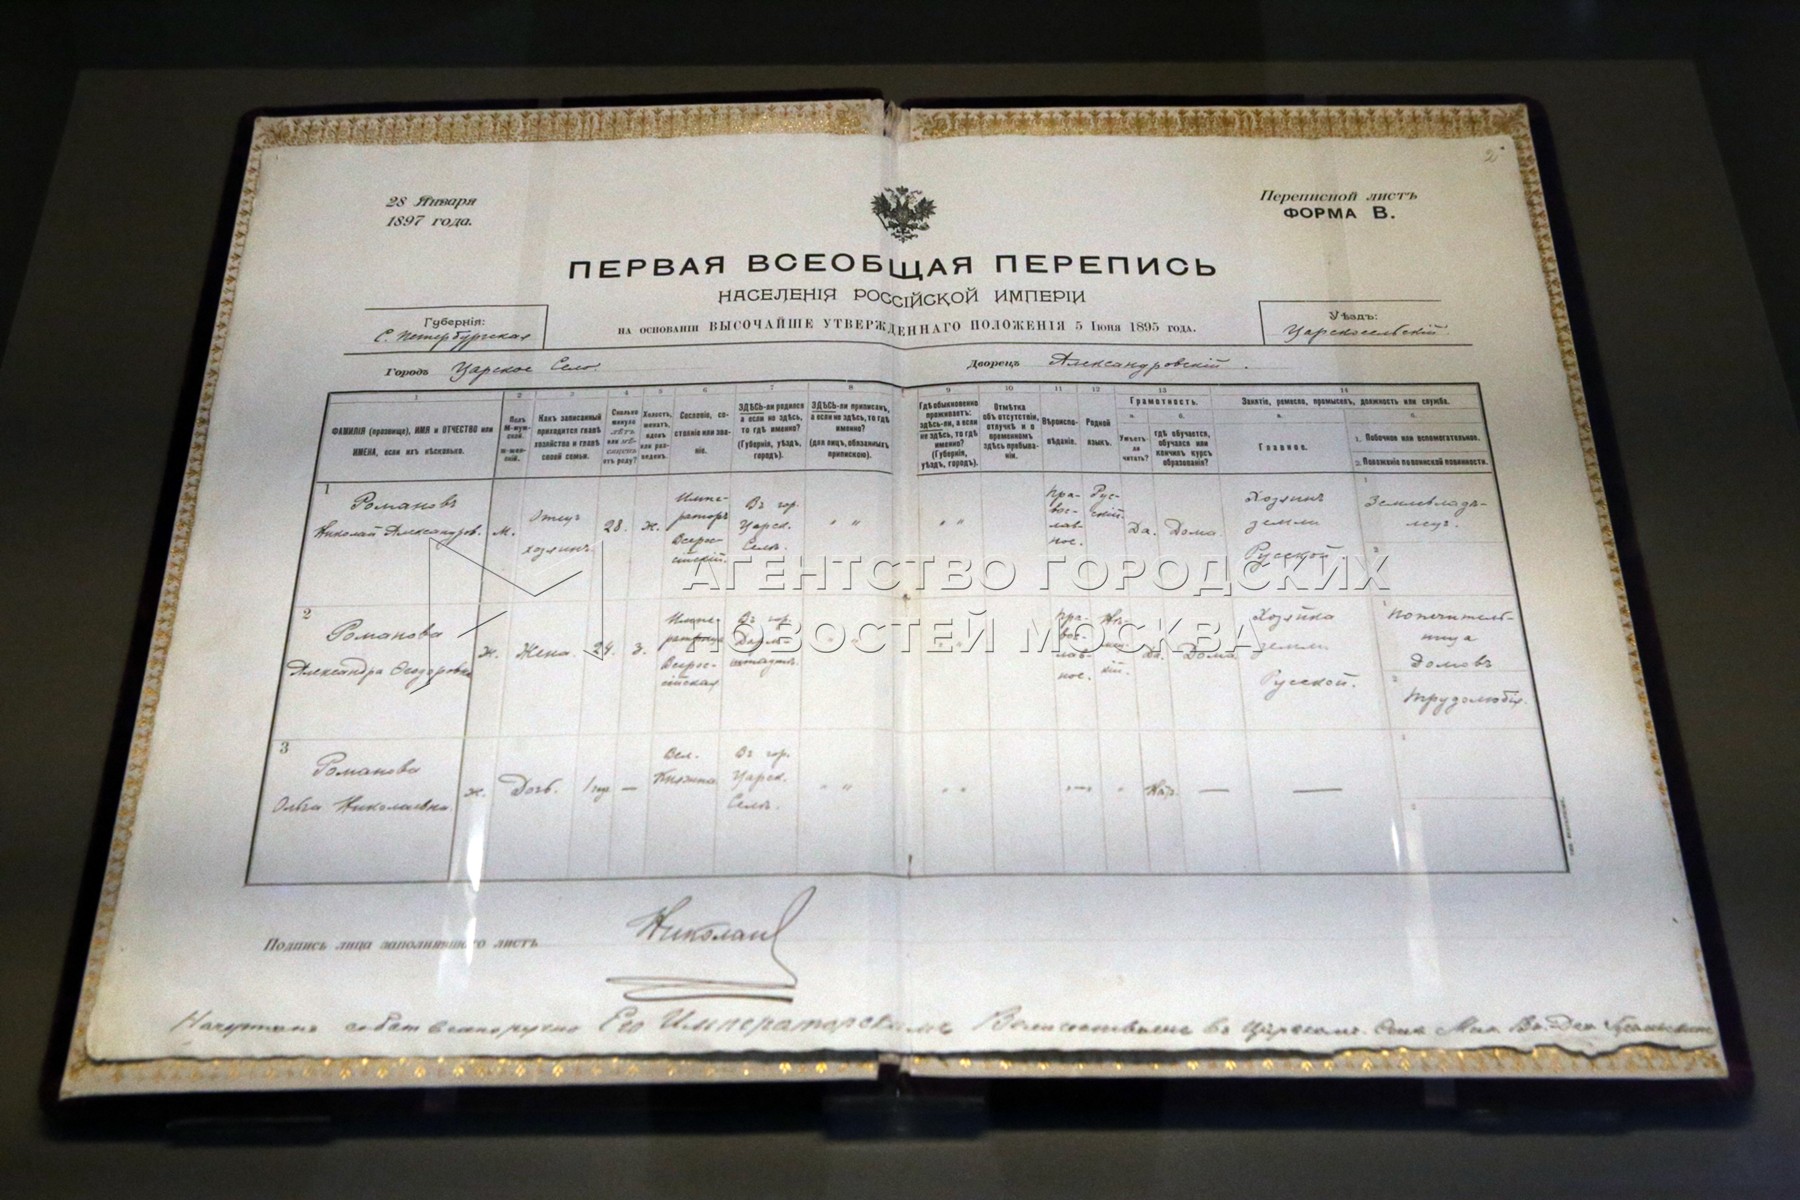 2
28 Января
1897 года.
Переписной листъ
ФОРМА В.
ПЕРВАЯ ВСЕОБЩАЯ ПЕРЕПИСЬ
НАСЕЛЕНІЯ РОССІЙСКОЙ ИМПЕРІИ
НА ОСНОВАНІИ ВЫСОЧАЙШЕ УТВЕРЖДЕННАГО ПОЛОЖЕНІЯ 5 Іюня 1895 года.
Губернія:
С. Петербургская
Уѣздъ:
Царскосельскій
Городъ Царское Село.
Дворецъ Александровскій.
1 2 3 4 5 6 7 8 9 10 11 12 13 14
ФАМИЛІЯ (прозвище), ИМЯ и ОТЧЕСТВО или
ИМЕНА, если ихъ нѣсколько.
Полъ
Какъ записанный
приходится главѣ
хозяйства и главѣ
своей семьи.
Сколько
минуло
лѣтъ
или мѣ-
сяцевъ
отъ роду?
Холостъ,
женатъ,
вдовъ
или раз-
веденъ.
Сословіе, со-
стояніе или зва-
ніе.
ЗДѢСЬ-ли родился
а если не здѣсь,
то гдѣ именно?
(Губернія, уѣздъ,
городъ).
ЗДѢСЬ-ли приписанъ,
а если не здѣсь, то гдѣ
именно?
(для лицъ, обязанныхъ
припискою).
Гдѣ обыкновенно
проживаетъ:
здѣсь-ли, а если
не здѣсь, то гдѣ
именно?
(Губернія,
уѣздъ, городъ).
Отмѣтка
объ отсутствіи,
отлучкѣ и о
временномъ
здѣсь пребыва-
ніи.
Вѣроиспо-
вѣданіе.
Родной
языкъ.
Грамотность.
а.
Умѣетъ-
ли
читать?
б.
гдѣ обучается,
обучался или
кончилъ курсъ
образованія?
Занятіе, ремесло, промыселъ, должность или служба.
а.
Главное.
б.
1. Побочное или вспомогательное.
2. Положеніе по воинской повинности.
1
Романовъ
Николай Александров.
м.
Отецъ
хозяинъ.
28.
ж.
Импе-
раторъ
Всерос-
сійскій.
Въ гор.
Царск.
Селѣ.
" "
" "
Пра-
вос-
лав-
ное.
Рус-
скій.
Да.
Дома.
Хозяинъ
земли
Русской.
1
Землевладѣ-
лецъ.
2
2
Романова
Александра Феодоровна
ж.
Жена.
24.
з.
Импе-
ратрица
Всерос-
сійская
Въ гор.
Дарм-
штадтѣ.
Пра-
вос-
лав-
ное.
Да.
Дома
Хозяйка
земли
Русской.
1
Попечитель-
ница
домовъ
2
трудолюбія.
3
Романова
Ольга Николаевна.
ж.
Дочь.
1 год
—
Вел.
Княжна
Въ гор.
Царск.
Селѣ.
" "
" "
" — "
"
—
—
1
2
Подпись лица заполнявшаго листъ
Николай
Начертано собственноручно Его Императорскимъ Величествомъ въ Царскомъ Селѣ
АГЕНТСТВО ГОРОДСКИХ
НОВОСТЕЙ МОСКВА